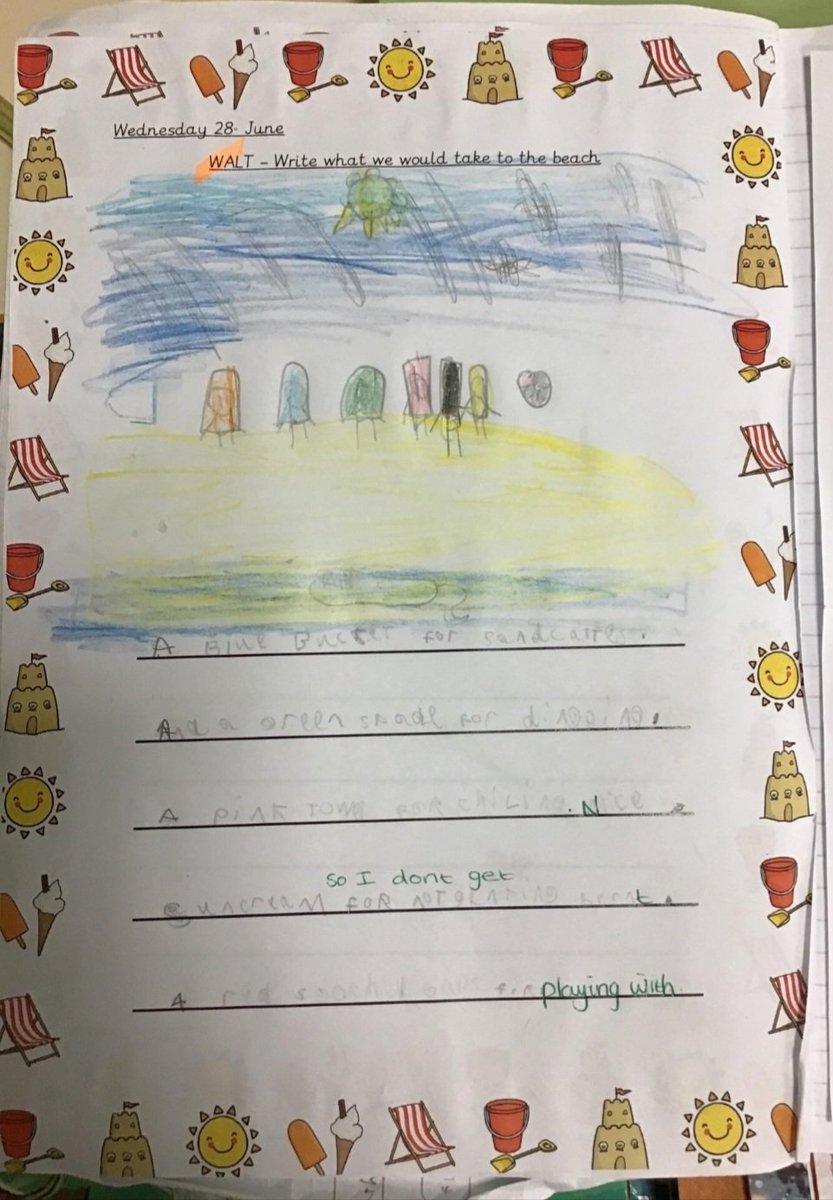 Wednesday 28. June
WALT - Write what we would take to the beach
A Blue Bucket for sandcastles.
And a green spade for digging.
A pink towl FOR chiling. Nice
so I dont get
suncream FOR not getting burnt.
A red playing with.